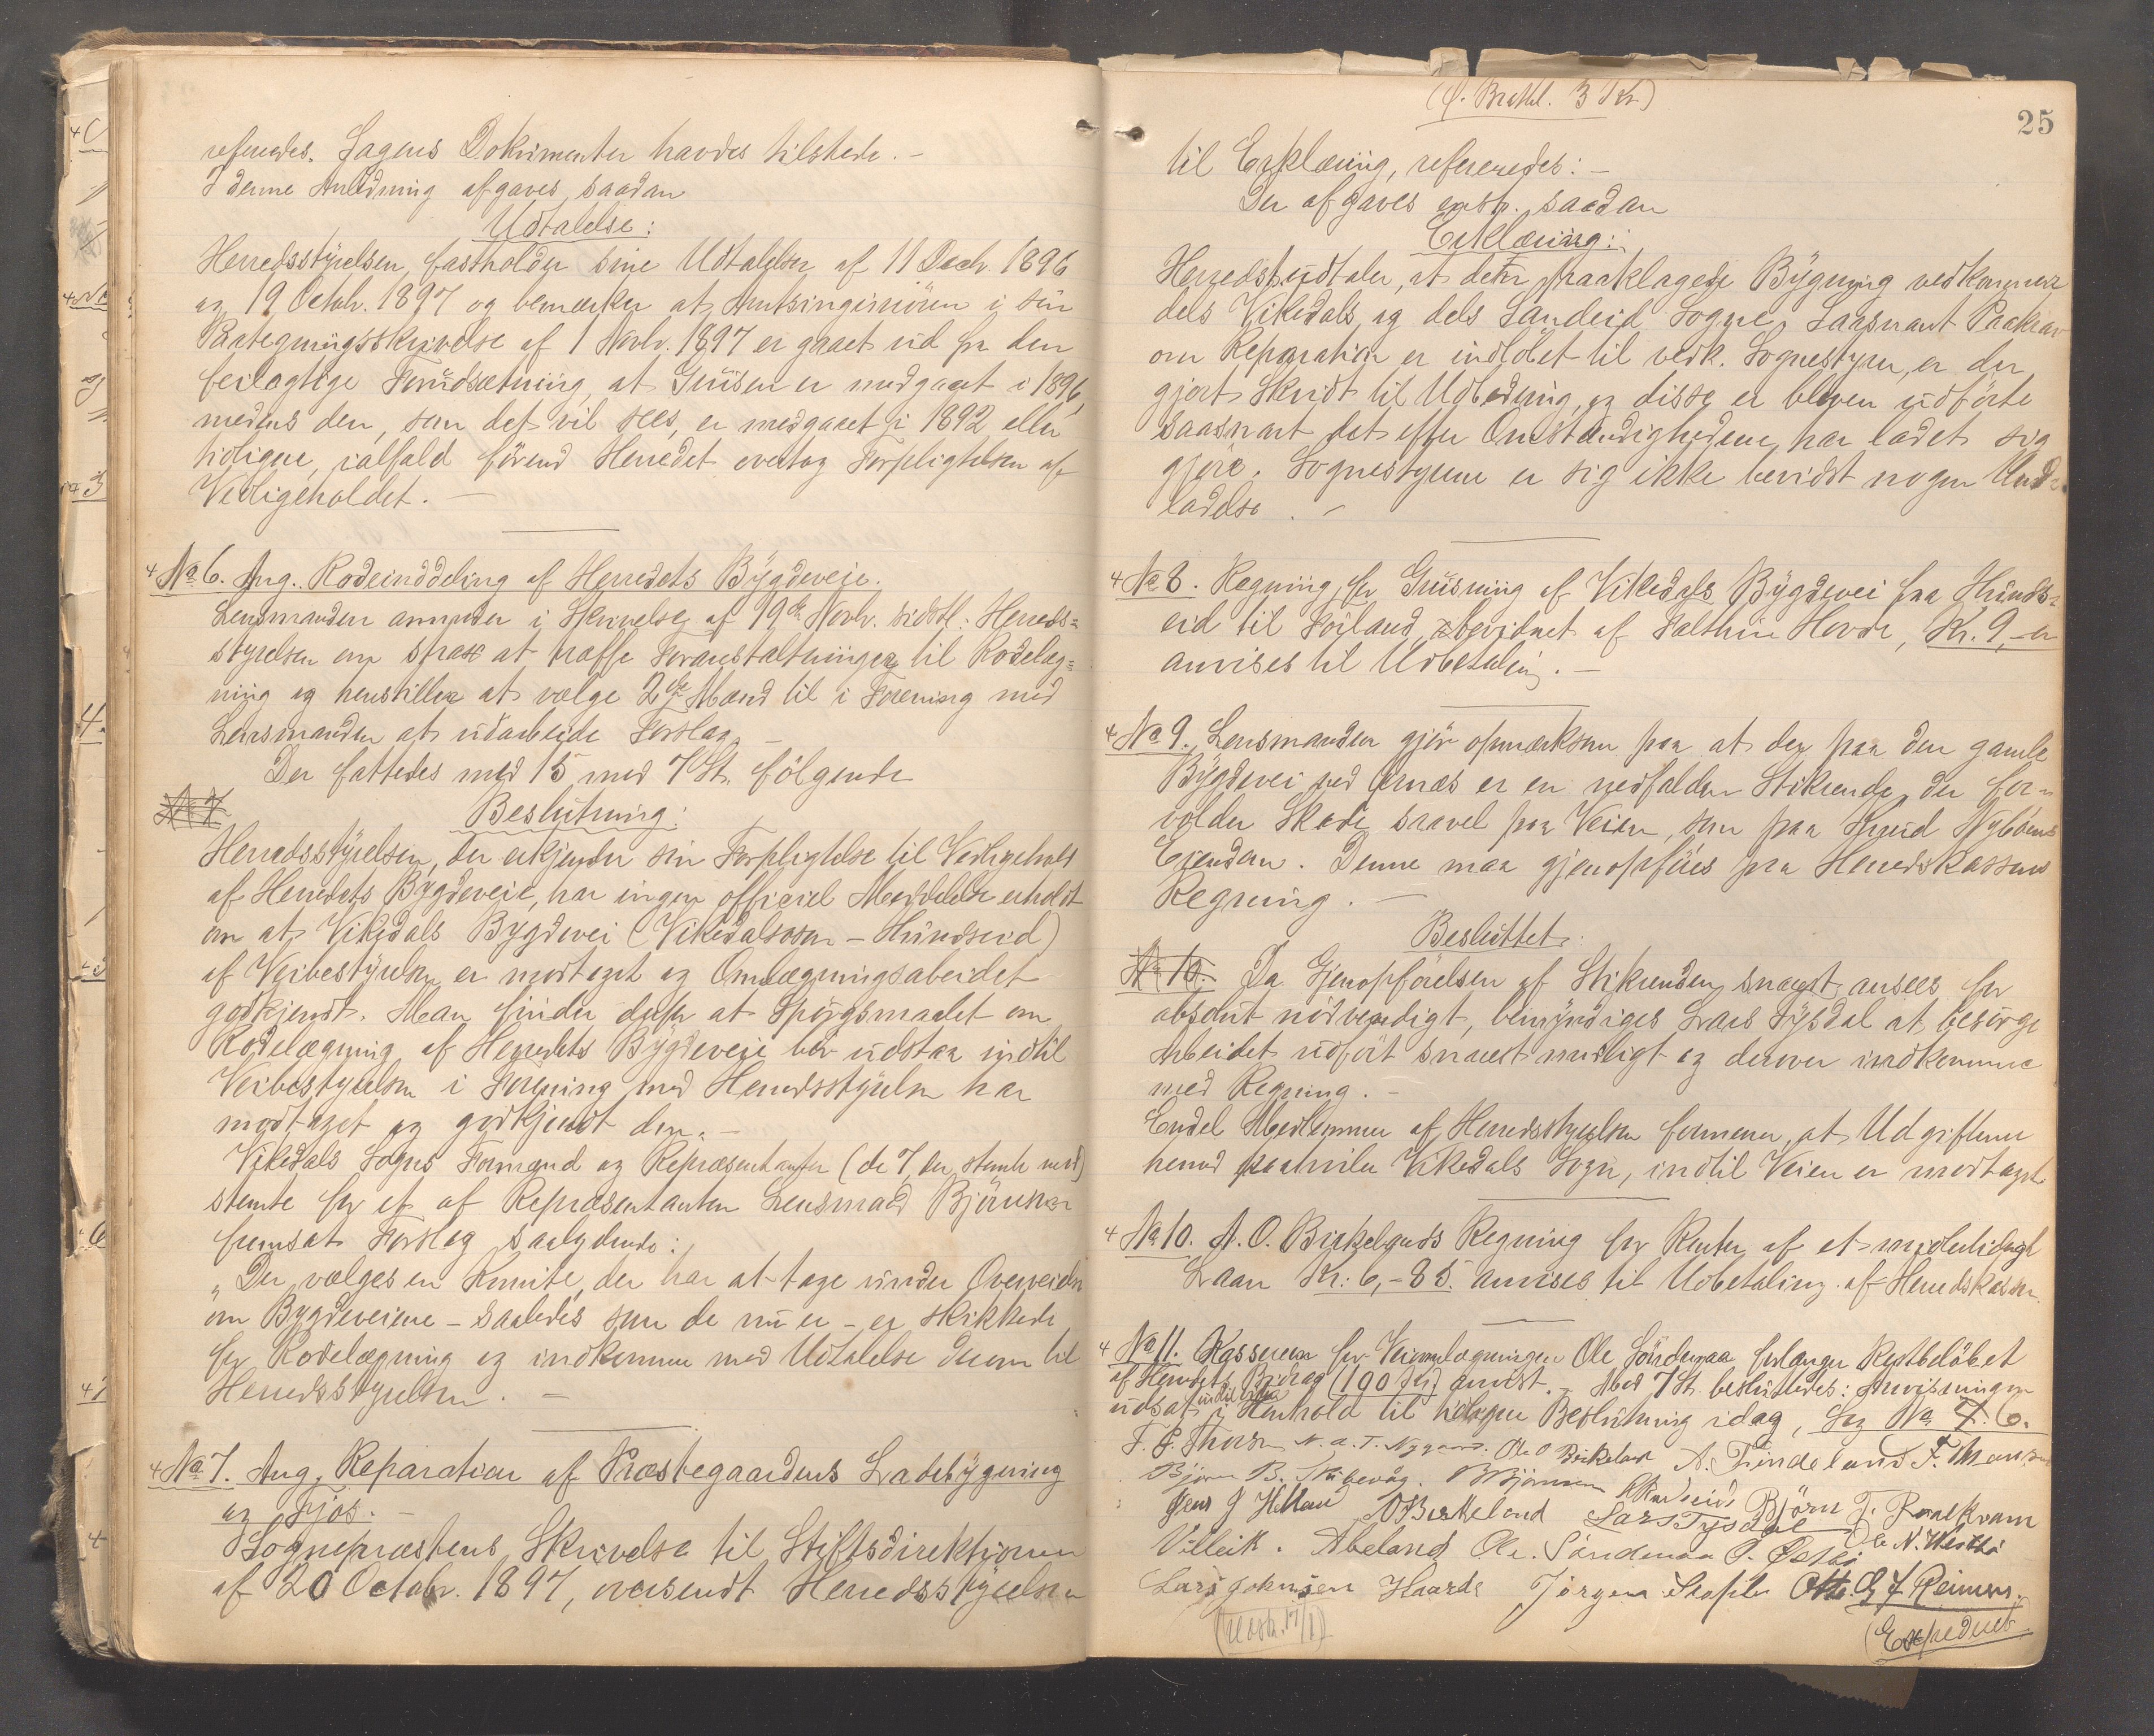 refereredes. Sagens Dokumenter havdes tilstede. –
I denne Anledning afgaves saadan
Udtalelse:
Herredsstyrelsen fastholder sine Udtalelser af 11 Decbr. 1896
og 19 Octobr. 1897 og bemærker at Amtsingeniören i sin
Paategningsskrivelse af 1 Novbr. 1897 er gaaet ud fra den
feilagtige Forudsætning, at Grusen er medgaaet i 1896,
medens den, som det vil sees, er medgaaet i 1892 eller
tidligere, ialfald förend Herredet overtog Forpligtelsen af
Vedligeholdet. –
No 6. Ang. Rodeinddeling af Herredets Bygdeveie.
Lensmanden anmoder i Skrivelse af 19de Novbr. sidstl. Herreds=
styrelsen om strax at træffe Foranstaltninger til Rodelæg=
ning og henstiller at vælge 2de Mænd til i Forening med
Lensmanden at udarbeide Forslag. –
Der fattedes med 15 mod 7 St. fölgende
No 7
Beslutning:
Herredsstyrelsen, der erkjender sin Forpligtelse til Vedligehold
af Herredets Bygdeveie, har ingen officiel Meddelelse erholdt
om at Vikedals Bygdevei (Vikedalsosen – Hundseid)
af Veibestyrelsen er modtaget og Omlægningsarbeidet
godkjendt. Man finder derfor at Spörgsmaalet om
Rodelægning af Herredets Bygdeveie bör udstaa indtil
Veibestyrelsen i Forening med Herredsstyrelsen har
modtaget og godkjendt den. –
Vikedals Sogns Formand og Repræsentanter (de 7, der stemte mod)
stemte for et af Repræsentanten Lensmand Björnsen
fremsat Forslag saalydende:
"Der vælges en Komite, der har at tage under Overveielse
om Bygdeveiene – saaledes som de nu er – er skikkede
for Rodelægning og indkomme med Udtalelse derom til
Herredsstyrelsen. –
No 7. Ang. Reparation af Præstegaardens Ladebygning
og Fjös. –
Sognepræstens Skrivelse til Stiftsdirektionen
af 20 Octobr. 1897, oversendt Herredsstyrelsen
25
3 Kr.)
til Erklæring, refereredes: –
Der afgaves saadan
Erklæring:
Herredst. udtaler, at den paaklagede Bygning vedkommer
dels Vikedals og dels Sandeid Sogne. Saasnart Paakrav
om Reparation er indlöbet til vedk. Sognestyrer, er der
gjort Skridt til Udbedring, og disse er bleven udförte
saasnart det efter Omstændighederne har ladet sig
gjöre. Sognestyrerne er sig ikke bevidst nogen Und=
ladelse. –
No 8. Regning for Grusning af Vikedals Bygdevei fra Hunds=
eid til Foiland, bevidnet af Falthin Hovde, Kr. 9,– er
anvises til Udbetaling. –
No 9. Lensmanden gjör opmærksom paa at der paa den gamle
Bygdevei ved er en nedfalden Stikrende, der for=
volder Skade saavel paa Veien, som paa Knud Nyböens
Eiendom. Denne maa gjenopföres paa Herredskassens
Regning. –
Besluttet:
No 10. Da Gjenopförelsen af Stikrenden snarest ansees for
absolut nödvendigt, bemyndiges Lars Tysdal at besörge
Arbeidet udfört snarest muligt og derover indkomme
med Regning. –
Endel Medlemmer af Herredsstyrelsen formener, at Udgifterne
herved paahviler Vikedals Sogn, indtil Veien er modtaget.
No 10. A. O. Birkelands Regning for Renter af et midlertidigt
Laan Kr. 6,–85. anvises til Udbetaling af Herredskassen.
No 11. Kassereren for Veiomlægningen Ole Söndenaa forlanger Restbelöbet
af Herredets Bidrag (100 Kr.) anvist. – Med 7 St. besluttedes: Anvisningen
udsat indtil videre i Henhold til tidligere Beslutning idag, Sag No 7. 6.
N. a. T. Nygaard. Ole O Birkeland A. Tindeland
Björn B. BBjörnsen
Jens J Helland ABirkeland Lars Tysdal Björn T. Raalkvam
Villeik. Abeland Ole. Söndenaa O. Østbö
Lars Johnsen Haarde Jörgen Stople Otto Chr. Reimers.
(Udskr. 17/1)
(Expederet)